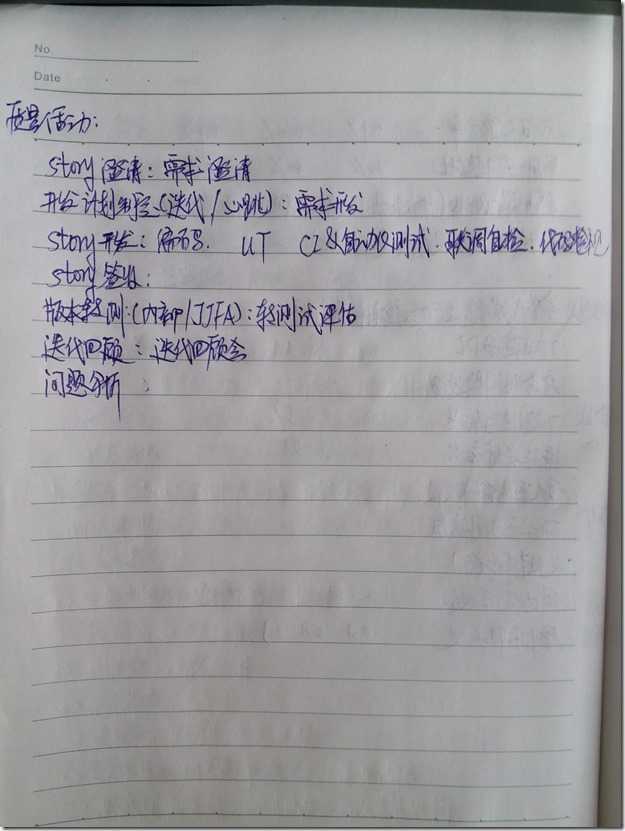 No.
Date
质量活动:
story 澄清: 需求澄清
开发计划制定(迭代/心跳): 需求开发
story 开发: 编码. UT CI&自动化测试. 联调自检. 代码检视
story 签收:
版本转测:(内部/JJFA): 转测试评估
迭代回顾: 迭代回顾会
问题分析 :